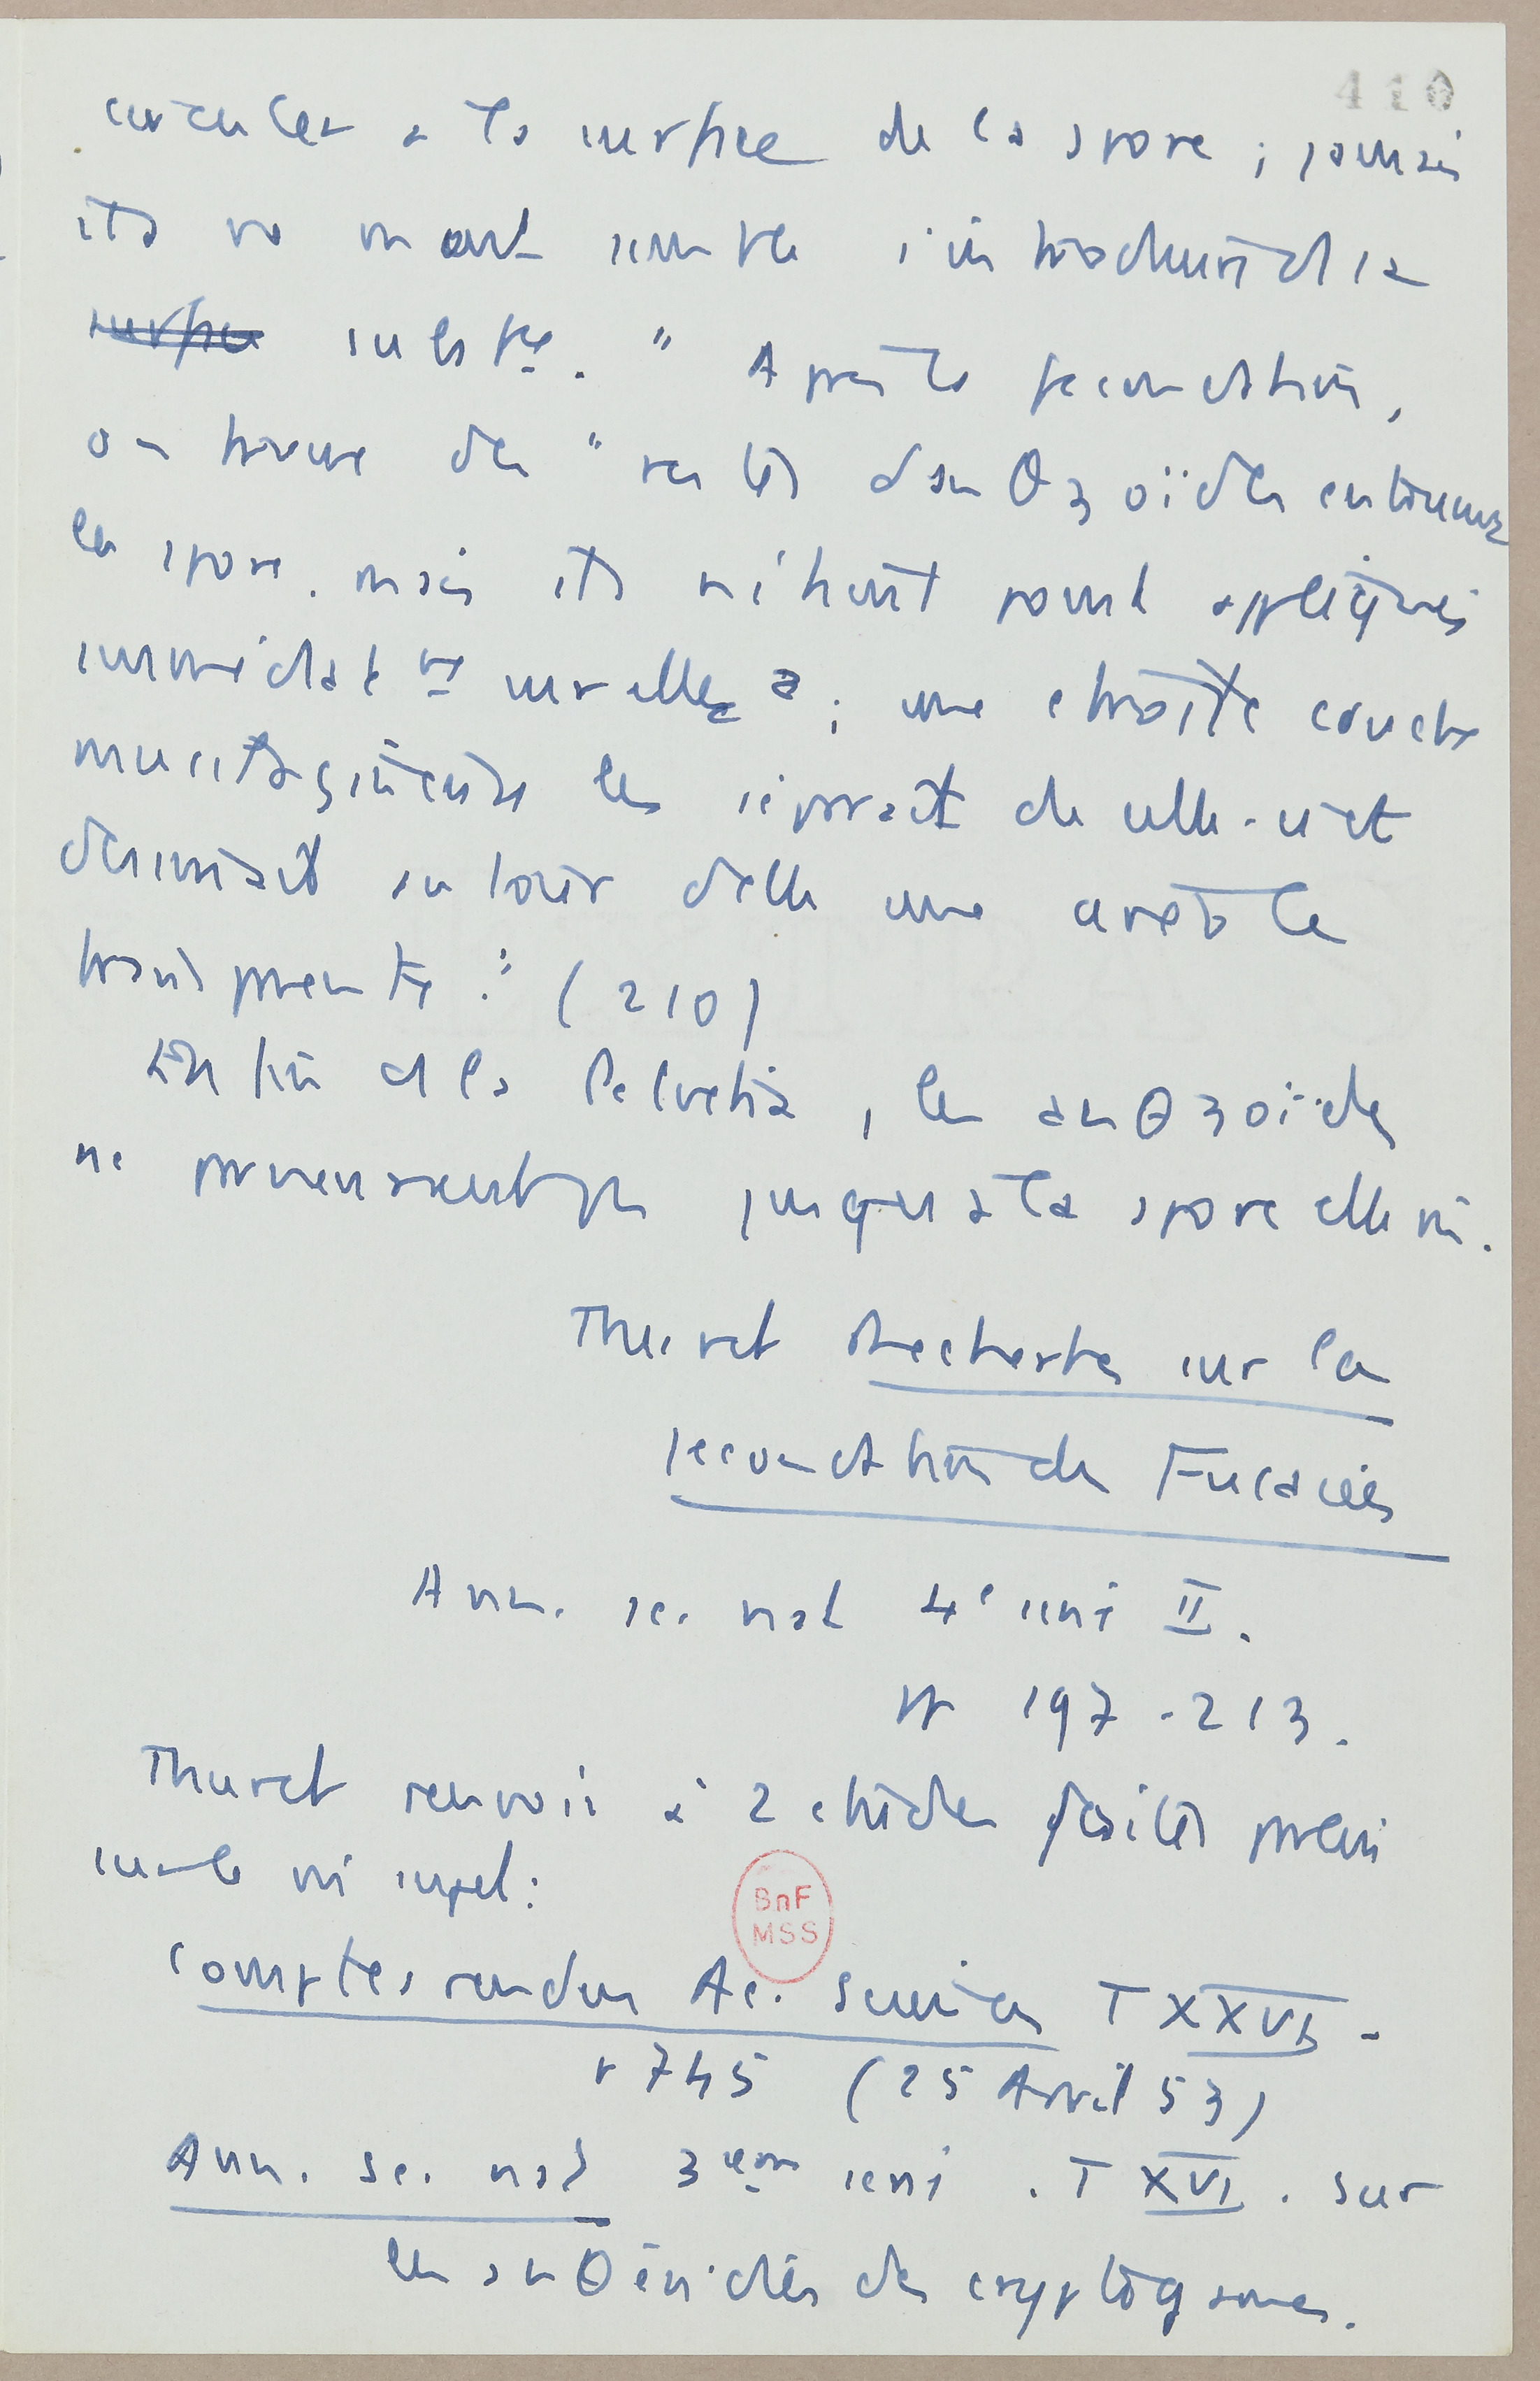 410
circuler à la surface de la spore ; jamais
ils ne m'ont semblé s'introduire ds la
surface subst ce. " Après la fécondation,
on trouve des " restes d'anθzoïdes entourant
la spore. mais ils n'étaient point appliqués
immédiat nt sur elle ; une étroite couche
mucilagineuse les séparait de celle-ci et
dessinait autour d'elle une auréole
transparente." (210)
Enfin ds la Pelvetia, les anθzoïdes
ne parvenaient pas jusqu'à la spore elle m.
Thuret Recherches sur la
fécondation des Fucacées
Ann. sc. nat 4e série II.
pp 197-213.
Thuret renvoie à 2 études faites par lui
sur le m sujet :
Comptes rendus Ac. Sciences T XXXVI -
p 745 (25 Avril 53)
Ann. sc. nat 3eme série . T XVI . sur
les anθéridies des cryptogames.
BnF
MSS